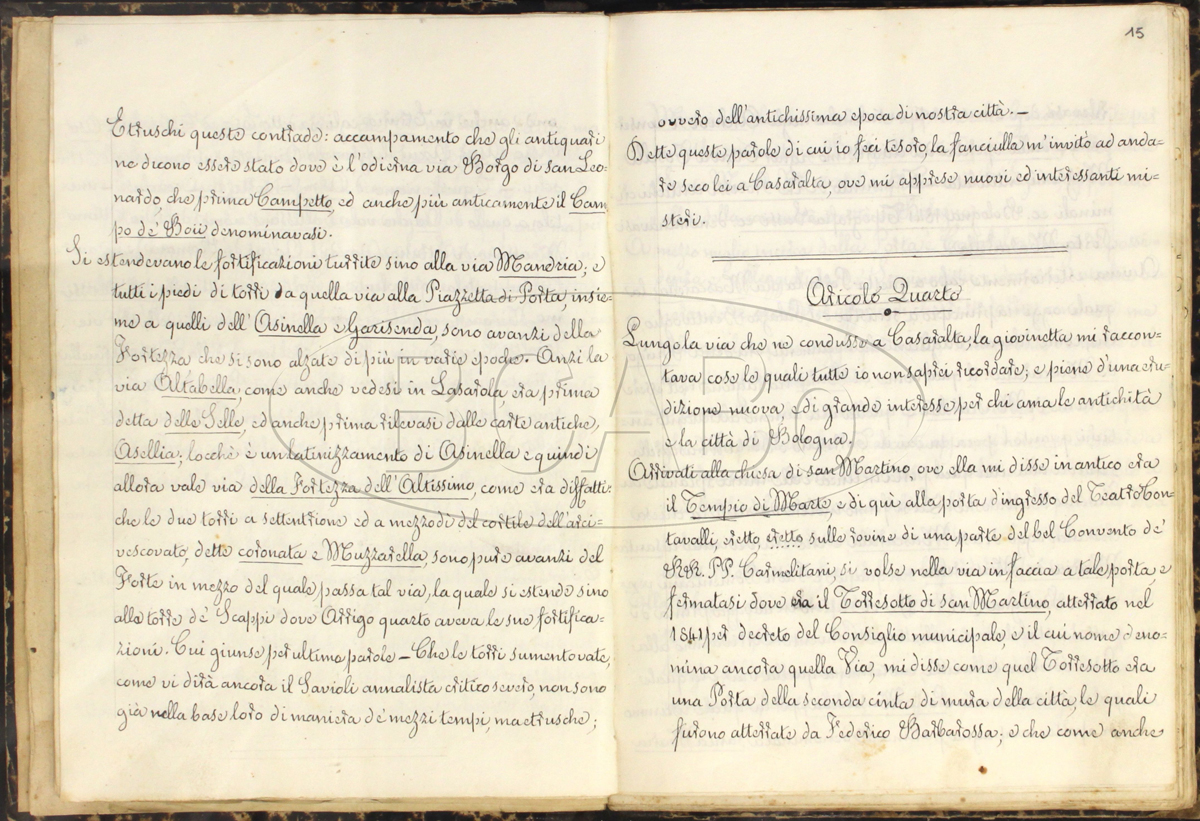 Etruschi queste contrade: accampamento che gli antiquari
ne dicono essere stato dove è l'odierna via Borgo di san Leo=
nardo, che prima Campetto, ed anche più anticamente il Cam
po de' Boii denominavasi.
Si estendevano le fortificazioni turrite sino alla via Mandria; e
tutti i piedi di torri da quella via alla Piazzetta di Porta, insie=
me a quelli dell'Asinella e Garisenda, sono avanzi della
Fortezza che si sono alzate di più in varie epoche. Anzi la
via Altabella, come anche vedesi in Lasarola, era prima
detta delle Selle, ed anche prima rilevasi dalle carte antiche,
Asellia; locchè è un latinizzamento di Asinella e quindi
allora vale via della Fortezza dell'Altissimo, come era diffatti:
che le due torri a settentrione ed a mezzodì del cortile dell'arci=
vescovato, dette coronata e Muzzarella, sono pure avanzi del
Forte in mezzo del quale passa tal via, la quale si estende sino
alle torre de' Scappi dove Arrigo quarto aveva le sue fortifica=
zioni. Cui giunse per ultimo parole – Che le torri sumentovate,
come vi dirà ancora il Savioli annalista critico severo, non sono
già nella base loro di maniera de' mezzi tempi, ma etrusche;
15
ovvero dell'antichissima epoca di nostra città. –
Dette queste parole di cui io feci tesoro, la fanciulla m'invitò ad anda=
re seco lei a Casaralta, ove mi apprese nuovi ed interessanti mi=
steri.
Aricolo Quarto
Lungo la via che ne condusse a Casaralta, la giovinetta mi raccon=
tava cose le quali tutte io non saprei ricordare; e piene d'una eru=
dizione nuova, e di grande interesse per chi ama le antichità
e la città di Bologna.
Arrivati alla chiesa di san Martino, ove ella mi disse in antico era
il Tempio di Marte, e di quì alla porta d'ingresso del Teatro Con=
tavalli, eretto, eretto sulle rovine di una parte del bel Convento de'
RR. PP. Carmelitani, si volse nella via in faccia a tale porta, e
fermatasi dove era il Torresotto di san Martino, atterrato nel
1841 per decreto del Consiglio municipale, e il cui nome deno=
mina ancora quella Via, mi disse come quel Torresotto era
una Porta della seconda cinta di mura della città, le quali
furono atterrate da Federico Barbarossa; e che come anche
BCABo